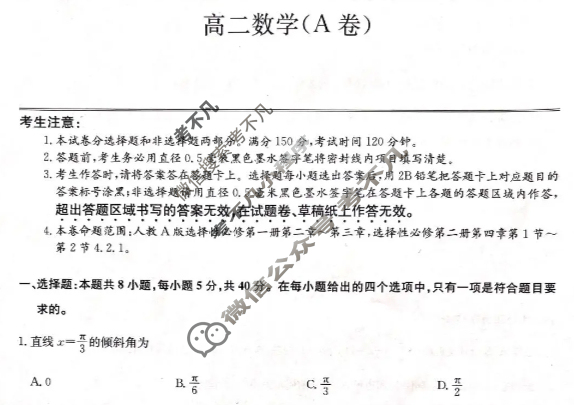 高二数学(A 卷)
考生注意:
1.本试卷分选择题和非选择题两部分。满分 150 分,考试时间 120 分钟。
2.答题前,考生务必用直径 0.5 毫米黑色墨水签字笔将密封线内项目填写清楚。
3.考生作答时,请将答案答在答题卡上。选择题每小题选出答案后,用 2B 铅笔把答题卡上对应题目的
答案标号涂黑;非选择题请用直径 0.5 毫米黑色墨水签字笔在答题卡上各题的答题区域内作答,
超出答题区域书写的答案无效,在试题卷、草稿纸上作答无效。
4.本卷命题范围:人教 A 版选择性必修第一册第二章~第三章,选择性必修第二册第四章第 1 节~
第 2 节 4.2.1。
一、选择题:本题共 8 小题,每小题 5 分,共 40 分。在每小题给出的四个选项中,只有一项是符合题目要
求的。
1.直线 x=π/3 的倾斜角为
A. 0 B. π/6 C. π/3 D. π/2
微信搜索考不凡
考不凡小程序
微信公众号考不凡